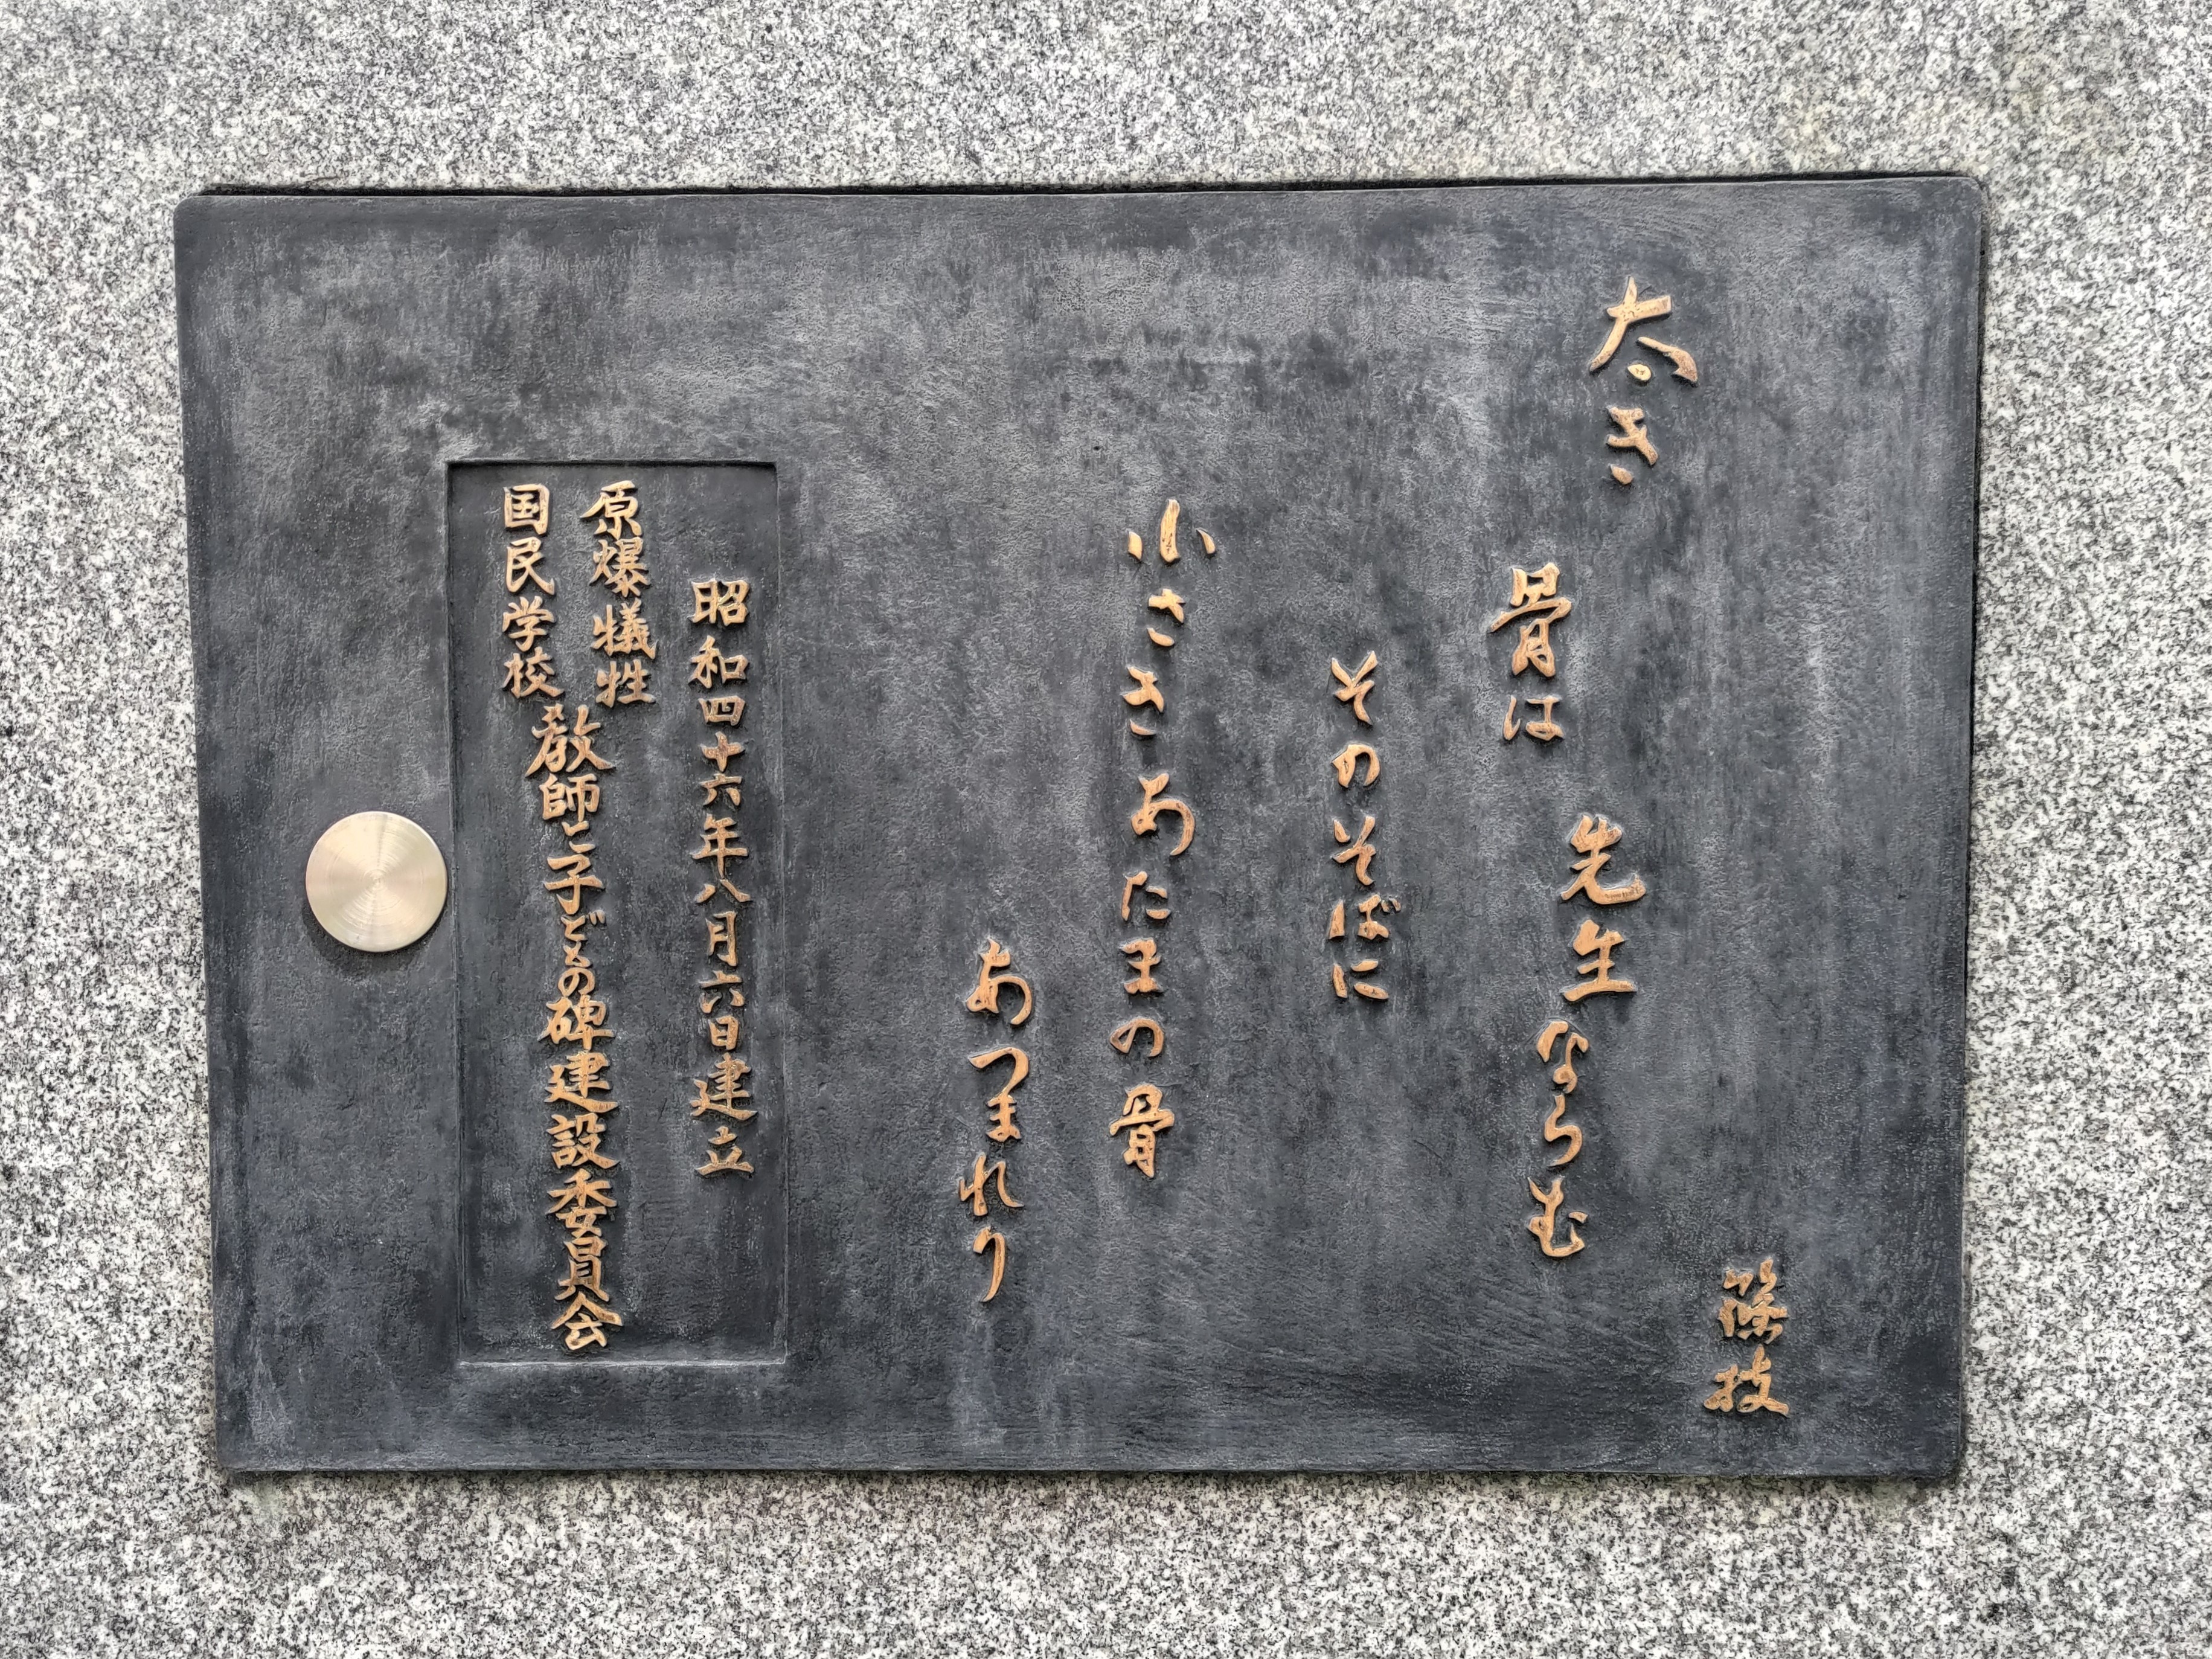 篠枝
太き骨は先生ならむ
そのそばに
小さきあたまの骨
あつまれり
昭和四十六年八月六日建立
原爆犠牲
国民学校
教師と子どもの碑建設委員会